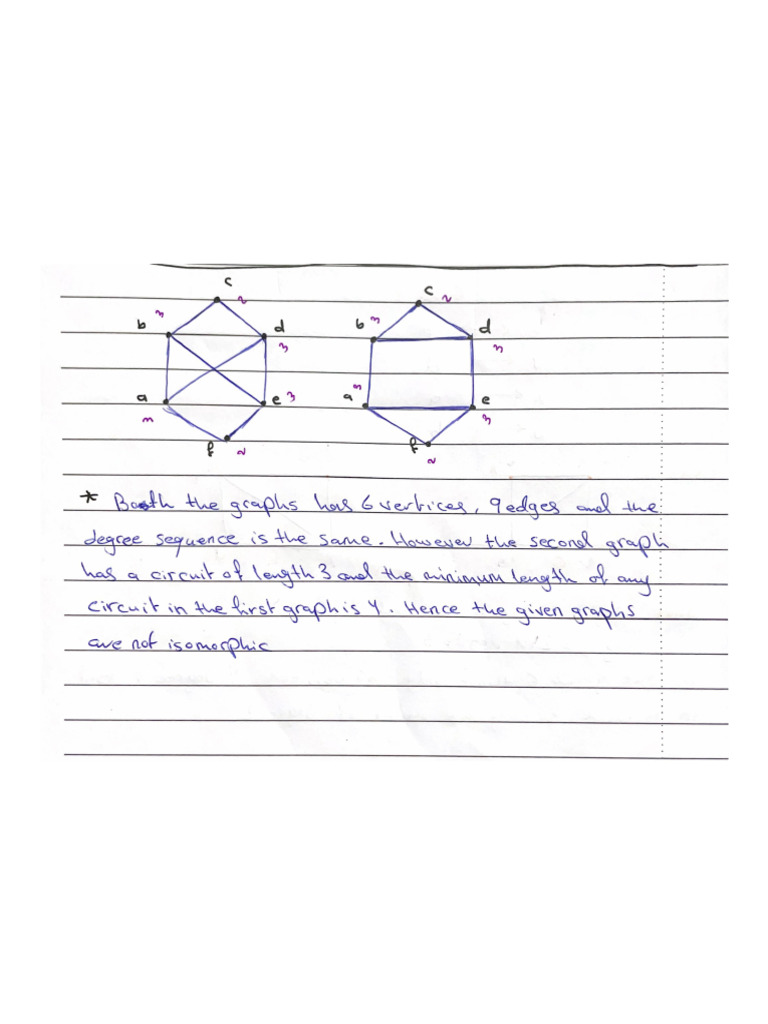 c c
2 2
3 3
b d b d
3 3
3
a e 3 a e
3 3
f f
2 2
* Booth the graphs has 6 vertices, 9 edges and the
degree sequence is the same. However the second graph
has a circuit of length 3 and the minimum length of any
circuit in the first graph is 4. Hence the given graphs
are not isomorphic